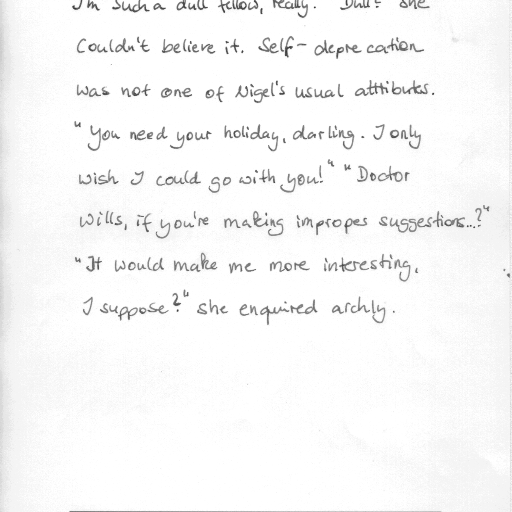 I'm such a dull fellow, really." "Dull?" she
Couldn't believe it. Self-deprecation
was not one of Nigel's usual attributes.
"You need your holiday, darling. I only
wish I could go with you!" "Doctor
Wills, if you're making impropes suggestions...?"
"It would make me more interesting,
I suppose?" she enquired archly.